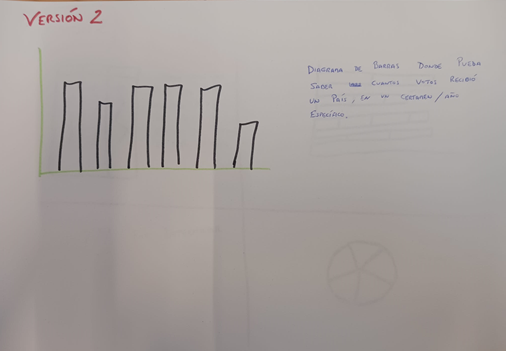 VERSIÓN 2
DIAGRAMA DE BARRAS DONDE PUEDA
SABER CUANTOS VOTOS RECIBIÓ
UN PAÍS, EN UN CERTAMEN/AÑO
ESPECÍFICO.